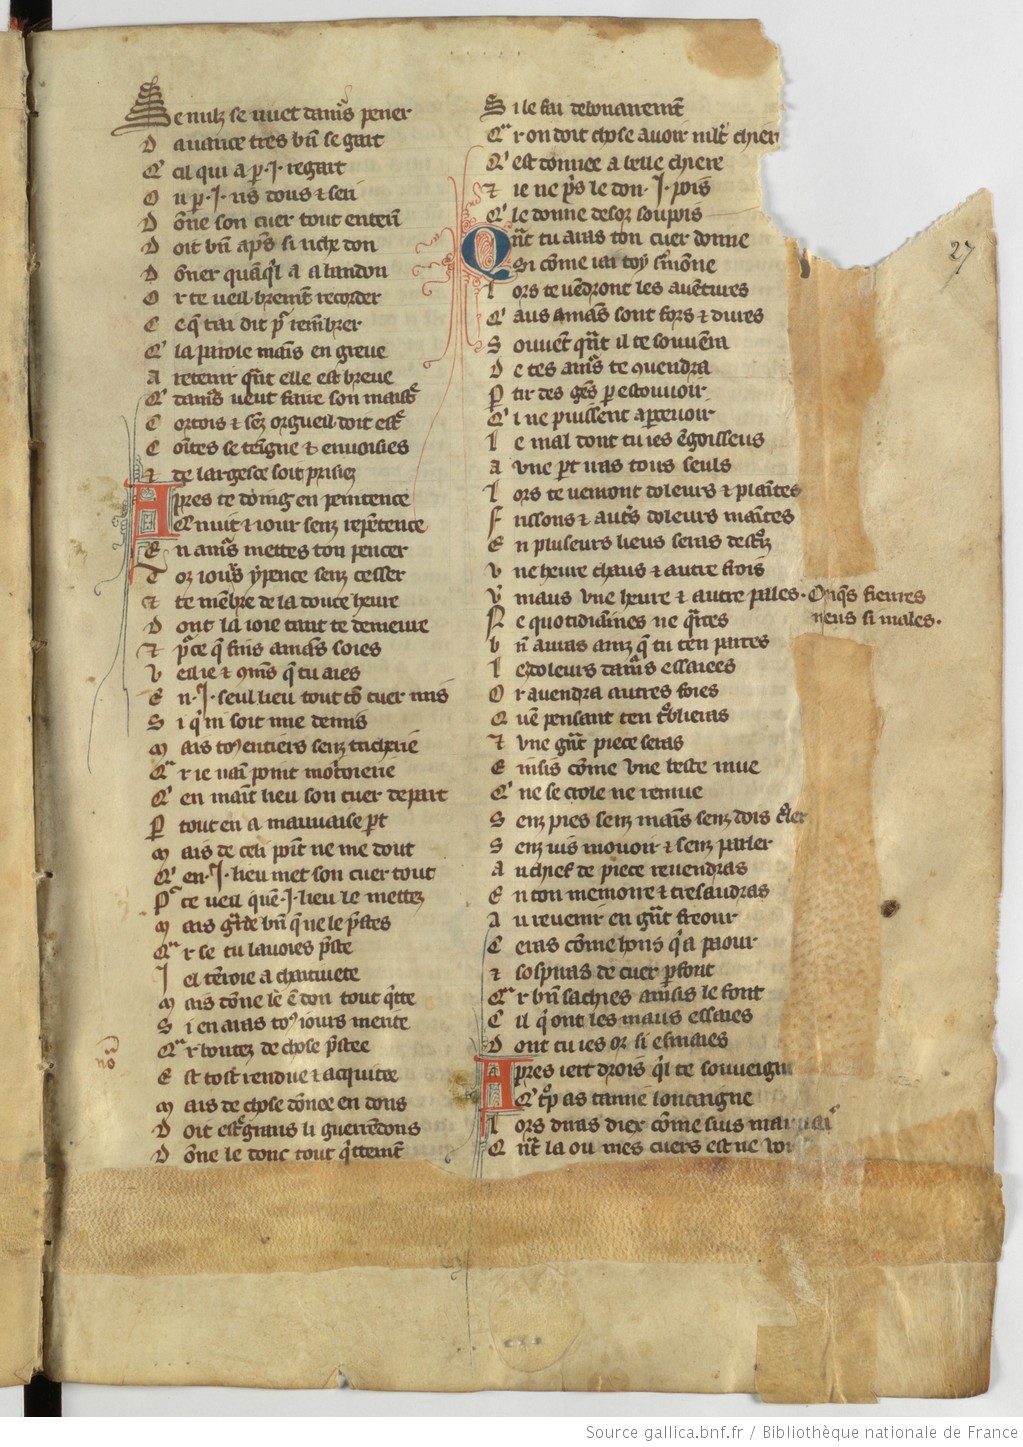 Se nulz se vuet damrs pener
D auance tres bn se gart
Q' cil qui a p .J. regart
O u p .J. ris dous & seri
D one son cuer tout enterin
D oit bn aps si riche don
D oner quaql a a bandon
O r te ueil briement recorder
C e q tai dit pr rembrer
Q' la parole mains en grieue
A retenir qnt elle est breue
Q' damrs veut faire son maistre
C ortois & senz orgueil doit estre
C ointes se teingne & enuoisies
& de largesce soit prisiez
Apres te doing en penitence
Q' nuit & iour senz repentence
E n amrs mettes ton pencer
T oz iours y pence senz cesser
& te membre de la douce heure
D ont la ioie tant te demeure
& pce q fins amans soies
V eil ie & comans q tu aies
E n .J. seul lieu tout ton cuer mis
S i ql ni soit mie demis
M ais toz entiers senz tricherie
Qr ie naim point moitoierie
Q' en maint lieu son cuer depart
P tout en a mauuaise part
M ais de celi point ne me dout
Q' en .J. lieu met son cuer tout
Pr ce ueil quen .J. lieu le mettez
M ais garde bn q ne le prestes
Qr se tu lauoies preste
J el tenroie a chaitiuete
M ais donne le en don tout quite
S i en auras tous iours merite
Qr bontez de chose prestee
E st tost rendue & acquitee
M ais de chose donnee en dons
D oit estre grans li guerredons
D onne le donc tout quitement
S i le fai debonairement
Qr on doit chose auoir mlt chiere
Q' est donnee a belle chiere
& ie ne pris le don .J. pois
Q' le donne desor soupois
Quant tu auras ton cuer donne
Si comme iai toy sermone
L ors te uendront les auentures
Q' aus amans sont fors & dures
S ouuent quant il te souuenra
D e tes amrs te couendra
P tir des gens p estouuoir
Q' i ne puissent aperceuoir
L e mal dont tu ies engoisseus
A vne part iras tous seuls
L ors te uenront doleurs & plaintes
F rissons & autres doleurs maintes
E n pluseurs lieus seras destroiz
V ne heure chaus & autre frois
V maus vne heure & autre pales. Onqs fieures
neus si males.
N e quotidiennes ne quartes
B n auras ainz q tu ten partes
L ez doleurs damrs essaiees
O r auendra autres foies
Q uen pensant ten troblieras
& vne grant piece seras
E insis comme vne beste mue
Q' ne se crole ne remue
S enz pies senz mains senz dois croler
S enz iuis mouoir & senz parler
A u chief de piece reuendras
E n ton memoire & tresaudras
A u reuenir en grant freour
C eras comme hons qi a paour
& sospiras de cuer parfont
Qr bn saches ainsis le font
C il qi ont les maus essaies
D ont tu ies or si esmaies
Apres iert drois qil te souueigne
Q' trop as tamie lontaigne
L ors diras diex comme suis mauuais
Q nt la ou mes cuers est ne
27
Source gallica.bnf.fr / Bibliothèque nationale de France